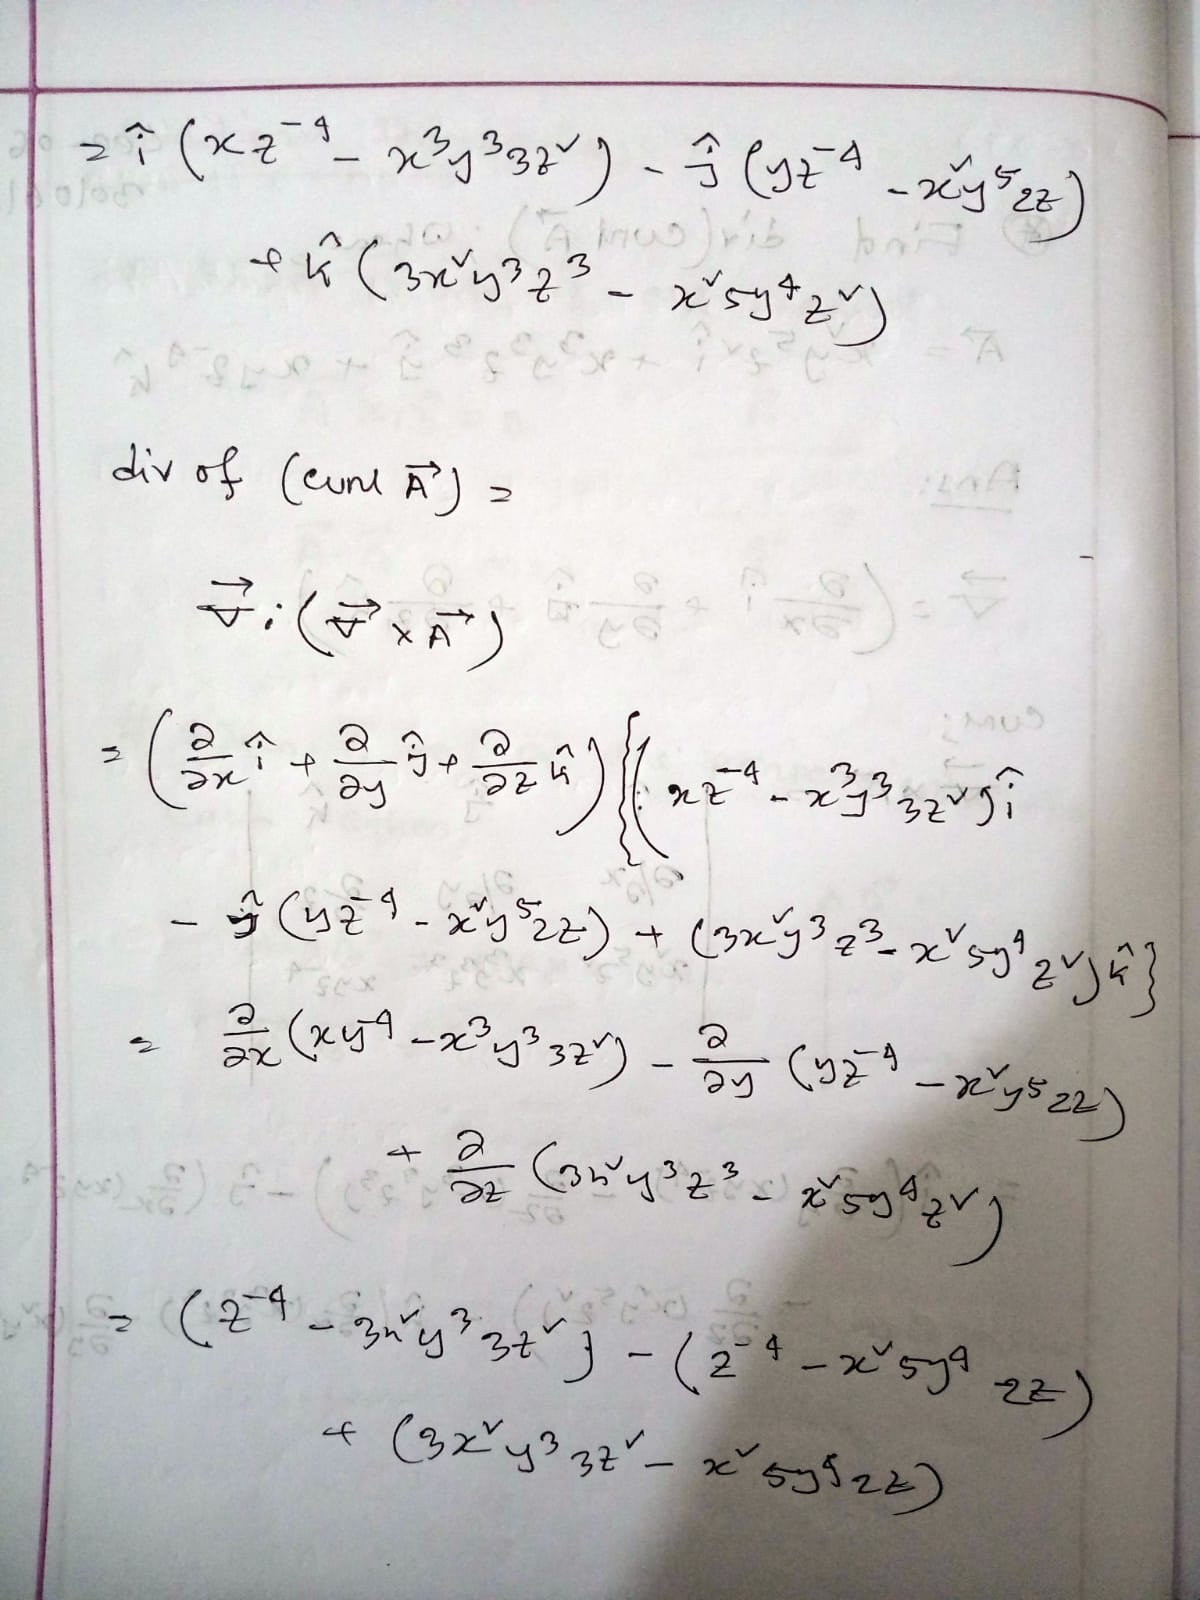 = î (xz⁻⁴ - x³y³3z²) - ĵ (yz⁻⁴ - x²y⁵2z)
+ k̂ (3x²y³z³ - x²5y⁴z²)
div of (curl A⃗) =
∇⃗ . (∇⃗ × A⃗)
= (∂/∂x î + ∂/∂y ĵ + ∂/∂z k̂) {(xz⁻⁴ - x³y³3z²) î
- ĵ (yz⁻⁴ - x²y⁵2z) + (3x²y³z³ - x²5y⁴z²) k̂}
= ∂/∂x (xy⁻⁴ - x³y³3z²) - ∂/∂y (yz⁻⁴ - x²y⁵2z)
+ ∂/∂z (3x²y³z³ - x²5y⁴z²)
= (z⁻⁴ - 3x²y³3z²) - (z⁻⁴ - x²5y⁴2z)
+ (3x²y³3z² - x²5y⁴2z)